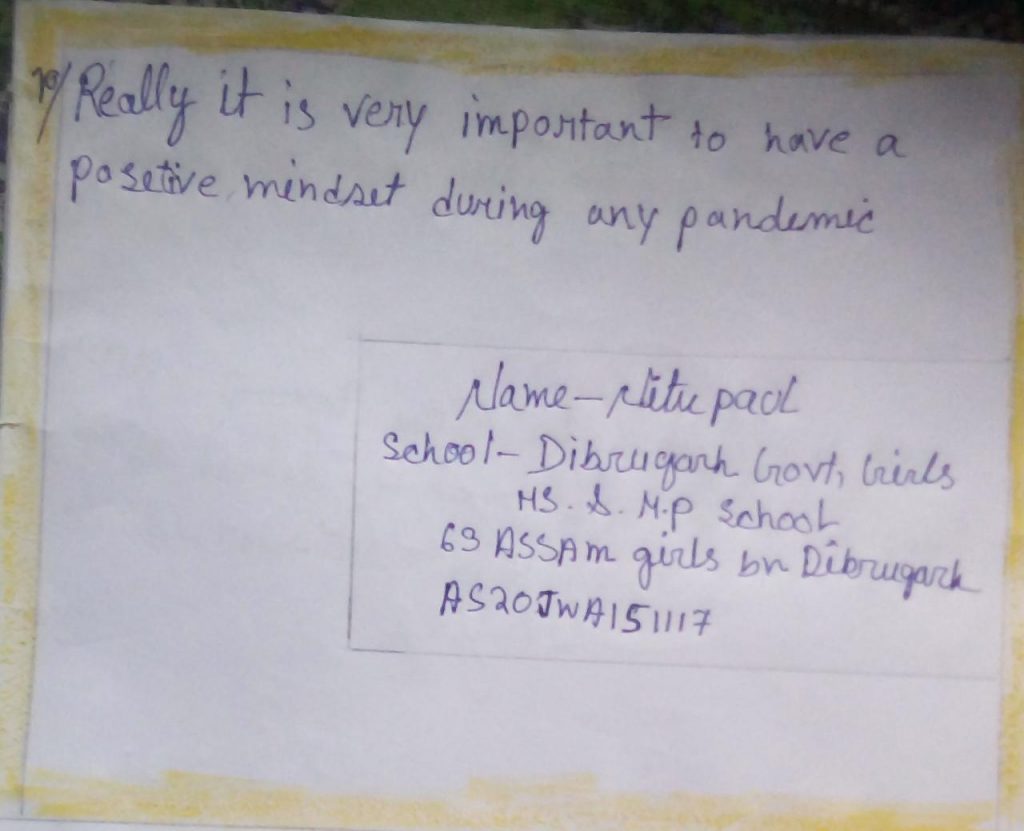 10/ Really it is very important to have a
posetive mindset during any pandemic
Name - Nitu paul
School - Dibrugarh Govt, Girls
HS. & M.P School
69 ASSAM girls bn Dibrugarh
AS20JWA151117